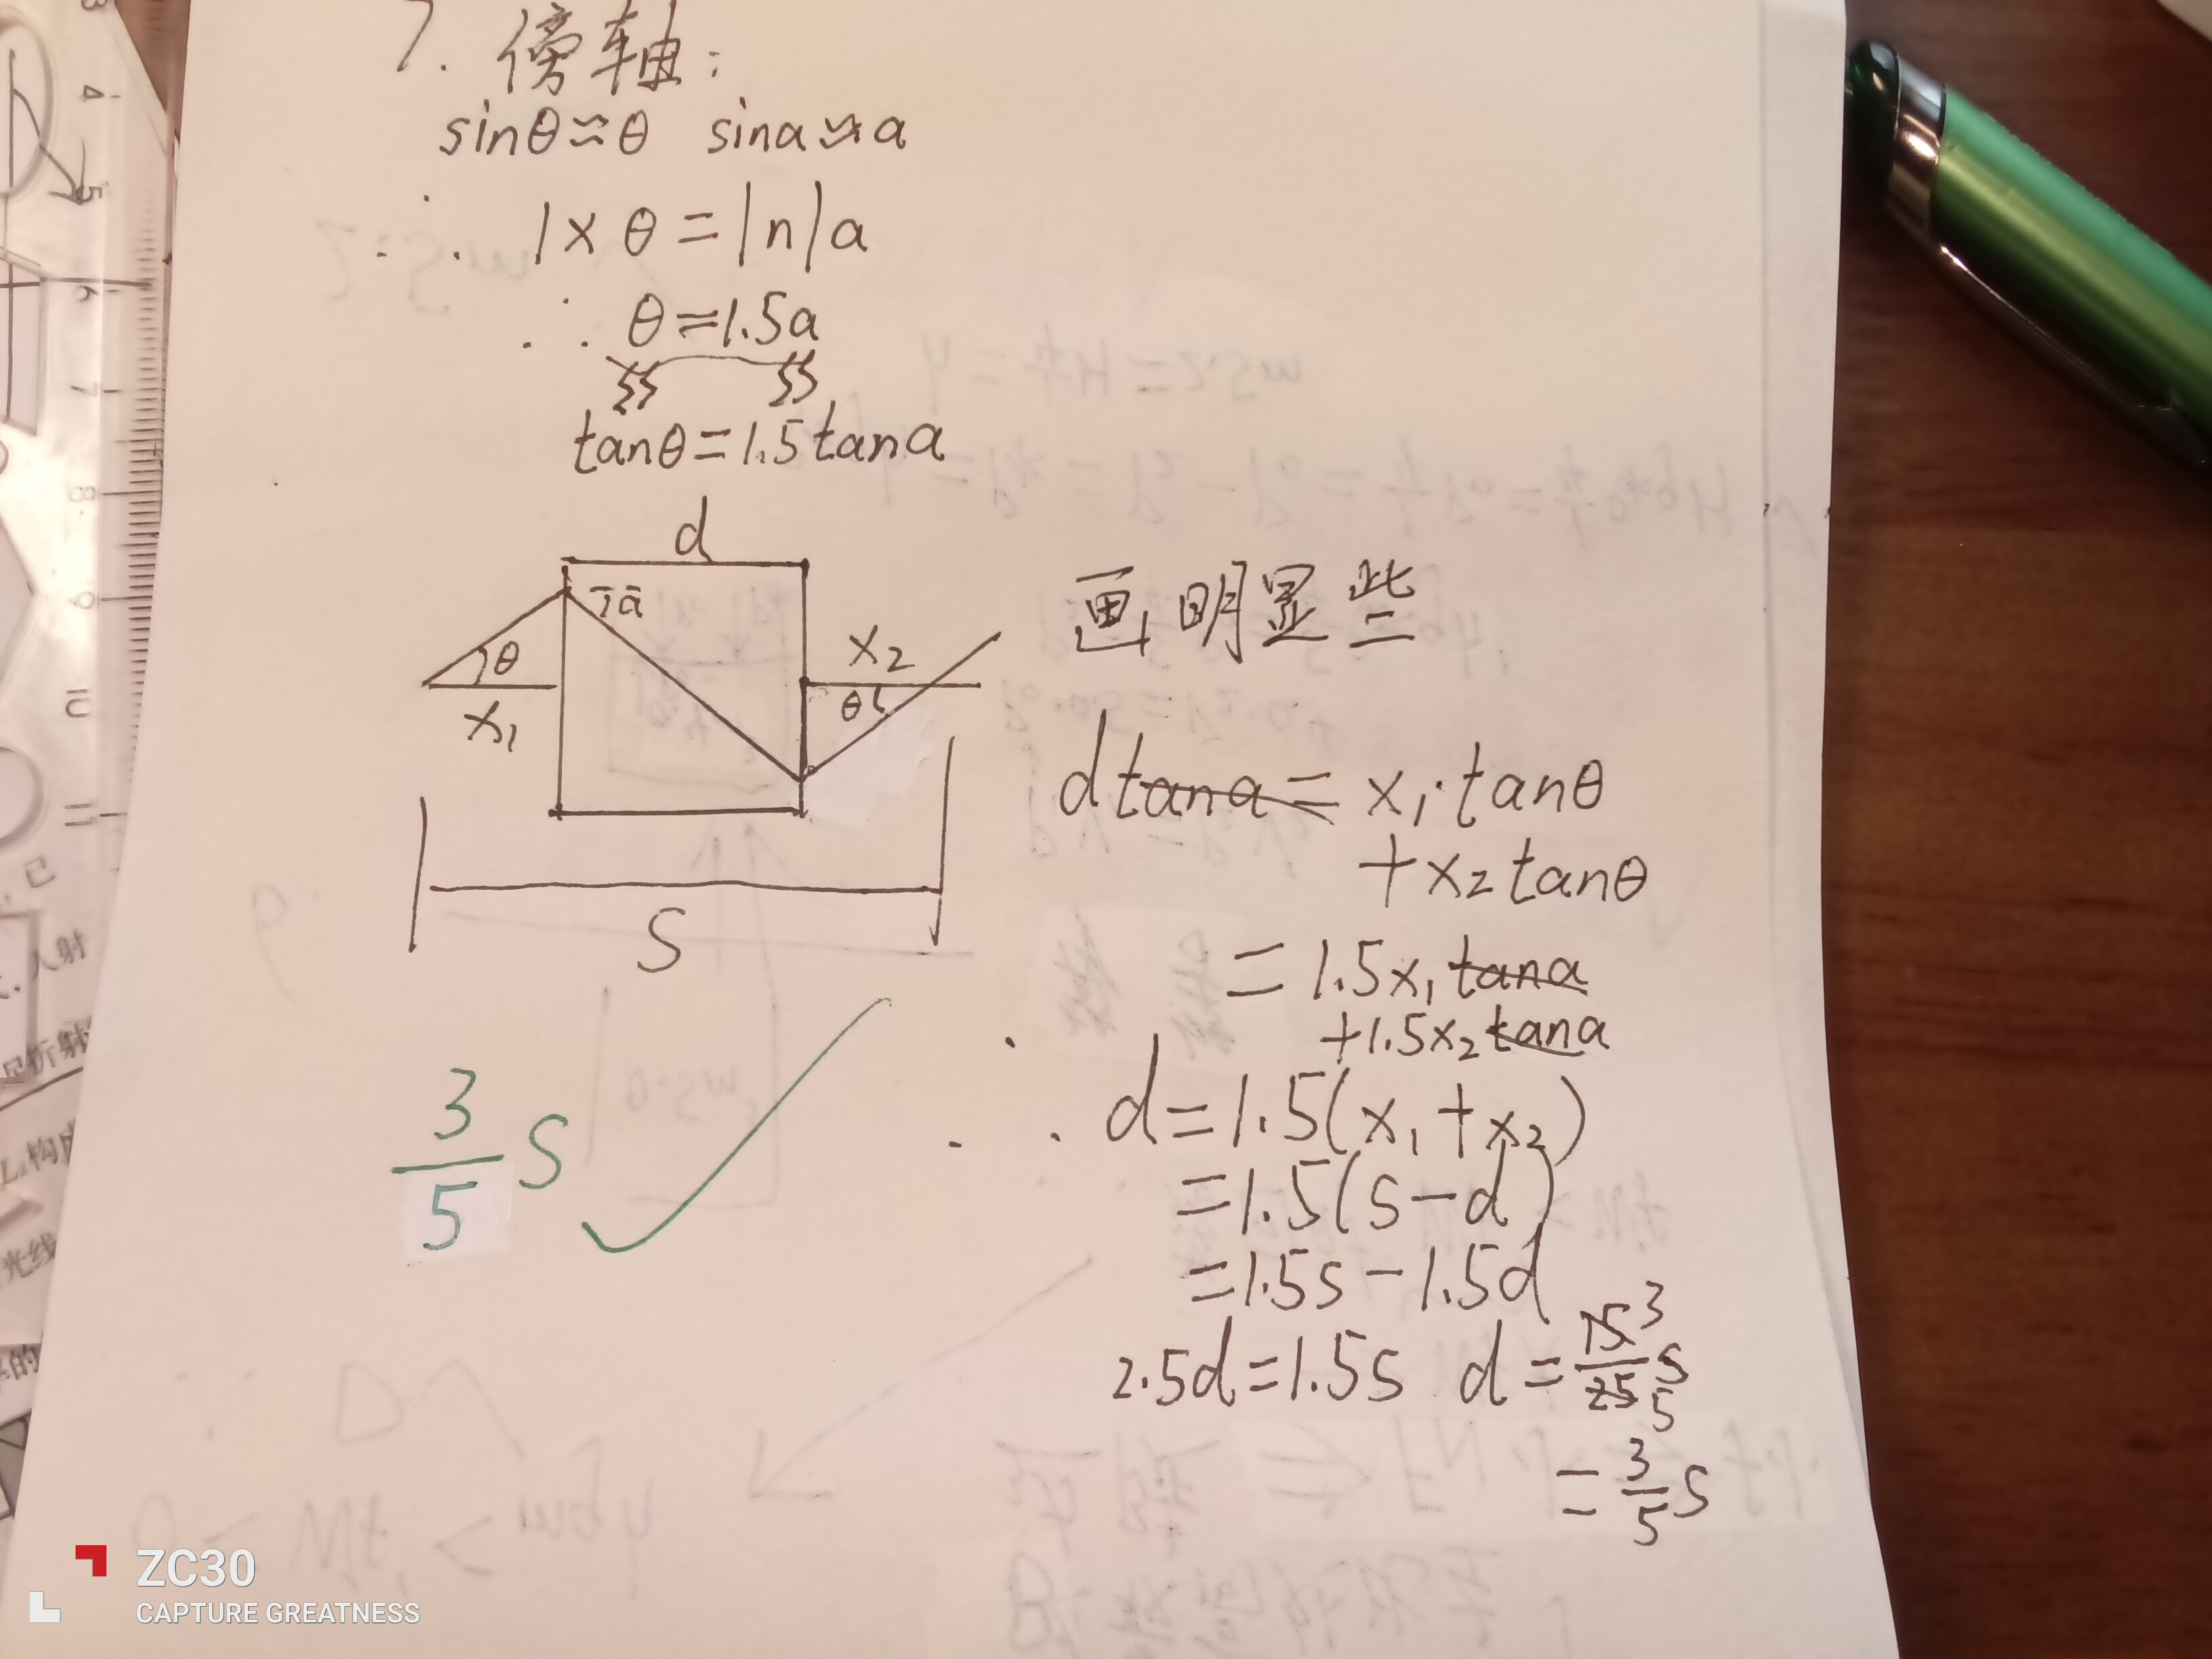 7. 傍轴:
sinθ≈θ sina≈a
∴ 1×θ=|n|a
∴ θ=1.5a
tanθ=1.5tana
d
a
θ
x₁
x₂
θ
S
画明显些
dtana= x₁·tanθ
+x₂tanθ
=1.5x₁tana
+1.5x₂tana
∴ d=1.5(x₁+x₂)
=1.5(s-d)
=1.5s-1.5d
2.5d=1.5s d=15/25 3/5 s
=3/5 s
3/5 S
4
5
6
7
8
9
10
11
入射
折射
构成
光线
的
ZC30
CAPTURE GREATNESS